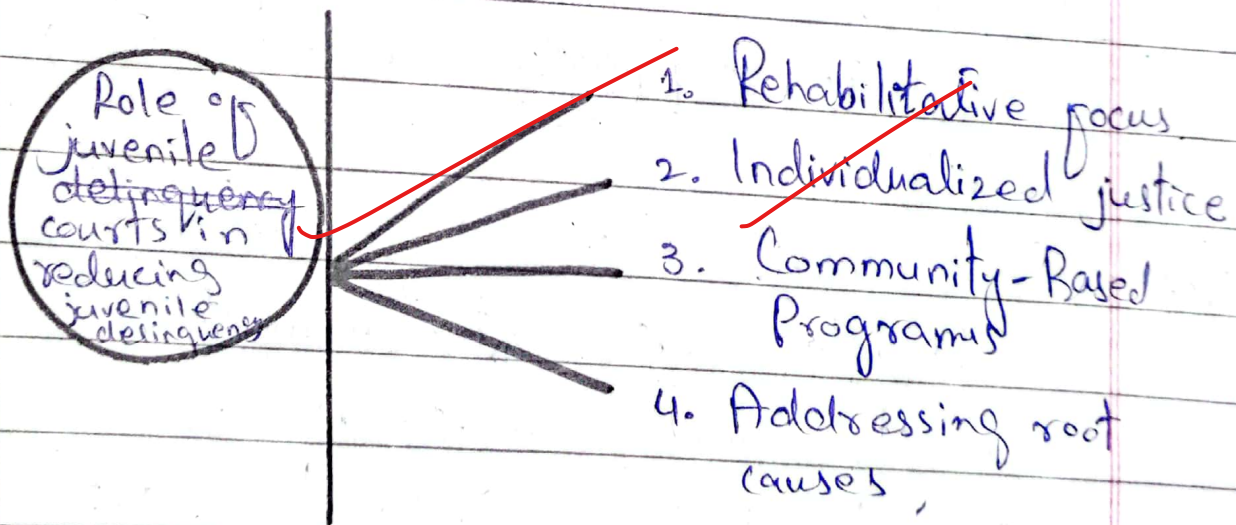 Role of
juvenile
delinquency
courts in
reducing
juvenile
delinquency
1. Rehabilitative focus.
2. Individualized justice
3. Community-Based
Programs
4. Addressing root
causes,